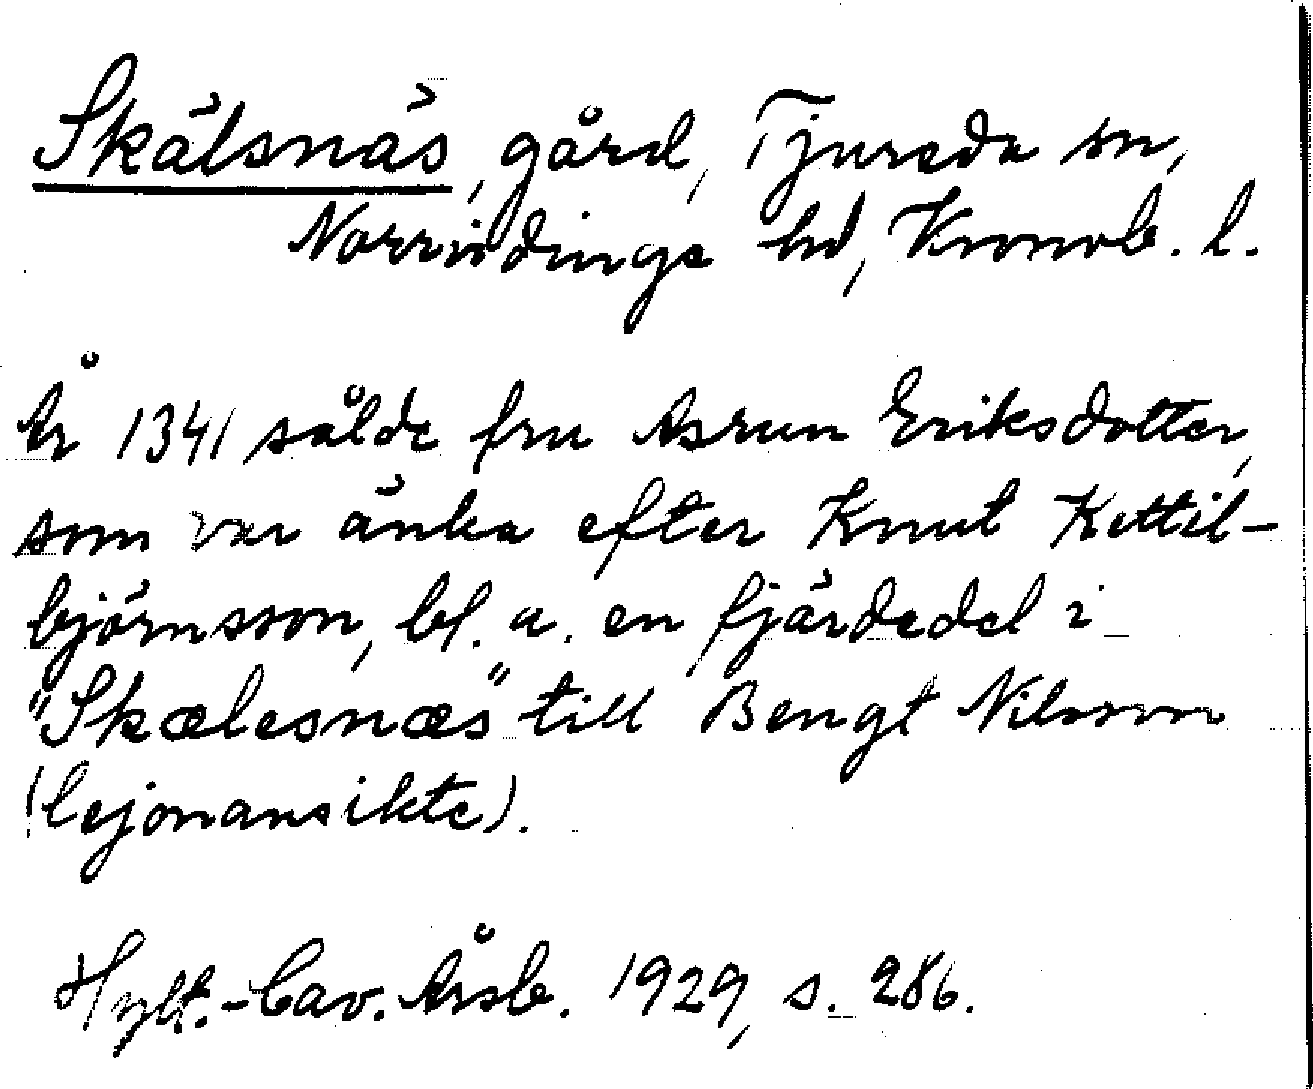 Skälsnäs, gård, Tjureda sn,
Norrvidinge hd, Kronob. l.
År 1341 sålde fru Asrun Eriksdotter,
som var änka efter Knut Kettil-
björnsson, bl. a. en fjärdedel i
"Skælesnæs" till Bengt Nilsson
(lejonansikte).
Hylt.-Cav. Årsb. 1929, s. 286.